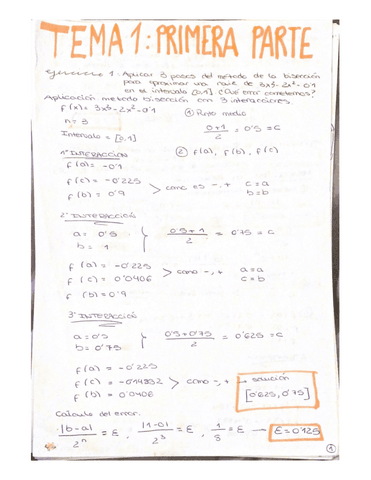 TEMA 1: PRIMERA PARTE
Ejercicio 1: Aplicar 3 pasos del método de la bisección
para aproximar una raíz de 3x³-2x²-0'1
en el intervalo [0,1] ¿Qué error cometemos?
Aplicación método bisección con 3 interacciones.
f(x) = 3x³-2x²-0'1
① Punto medio
n = 3
(0+1)/2 = 0'5 = c
Intervalo = [0,1]
1ª INTERACCIÓN
② f(a), f(b), f(c)
f(a) = -0'1
f(c) = -0'225 > como es -,+ c=a
f(b) = 0'9 b=b
2ª INTERACCIÓN
a = 0'5
b = 1 } (0'5+1)/2 = 0'75 = c
f(a) = -0'225
f(c) = 0'0406 > como -,+ a=a
c=b
f(b) = 0'9
3ª INTERACCIÓN
a = 0'5
b = 0'75 } (0'5+0'75)/2 = 0'625 = c
f(a) = -0'225
f(c) = > como -,+ → solución
f(b) = 0'0406
[0'625, 0'75]
Cálculo del error.
|b-a|/2ⁿ = E, |1-0|/2³ = E, 1/8 = E → E=0'125
1